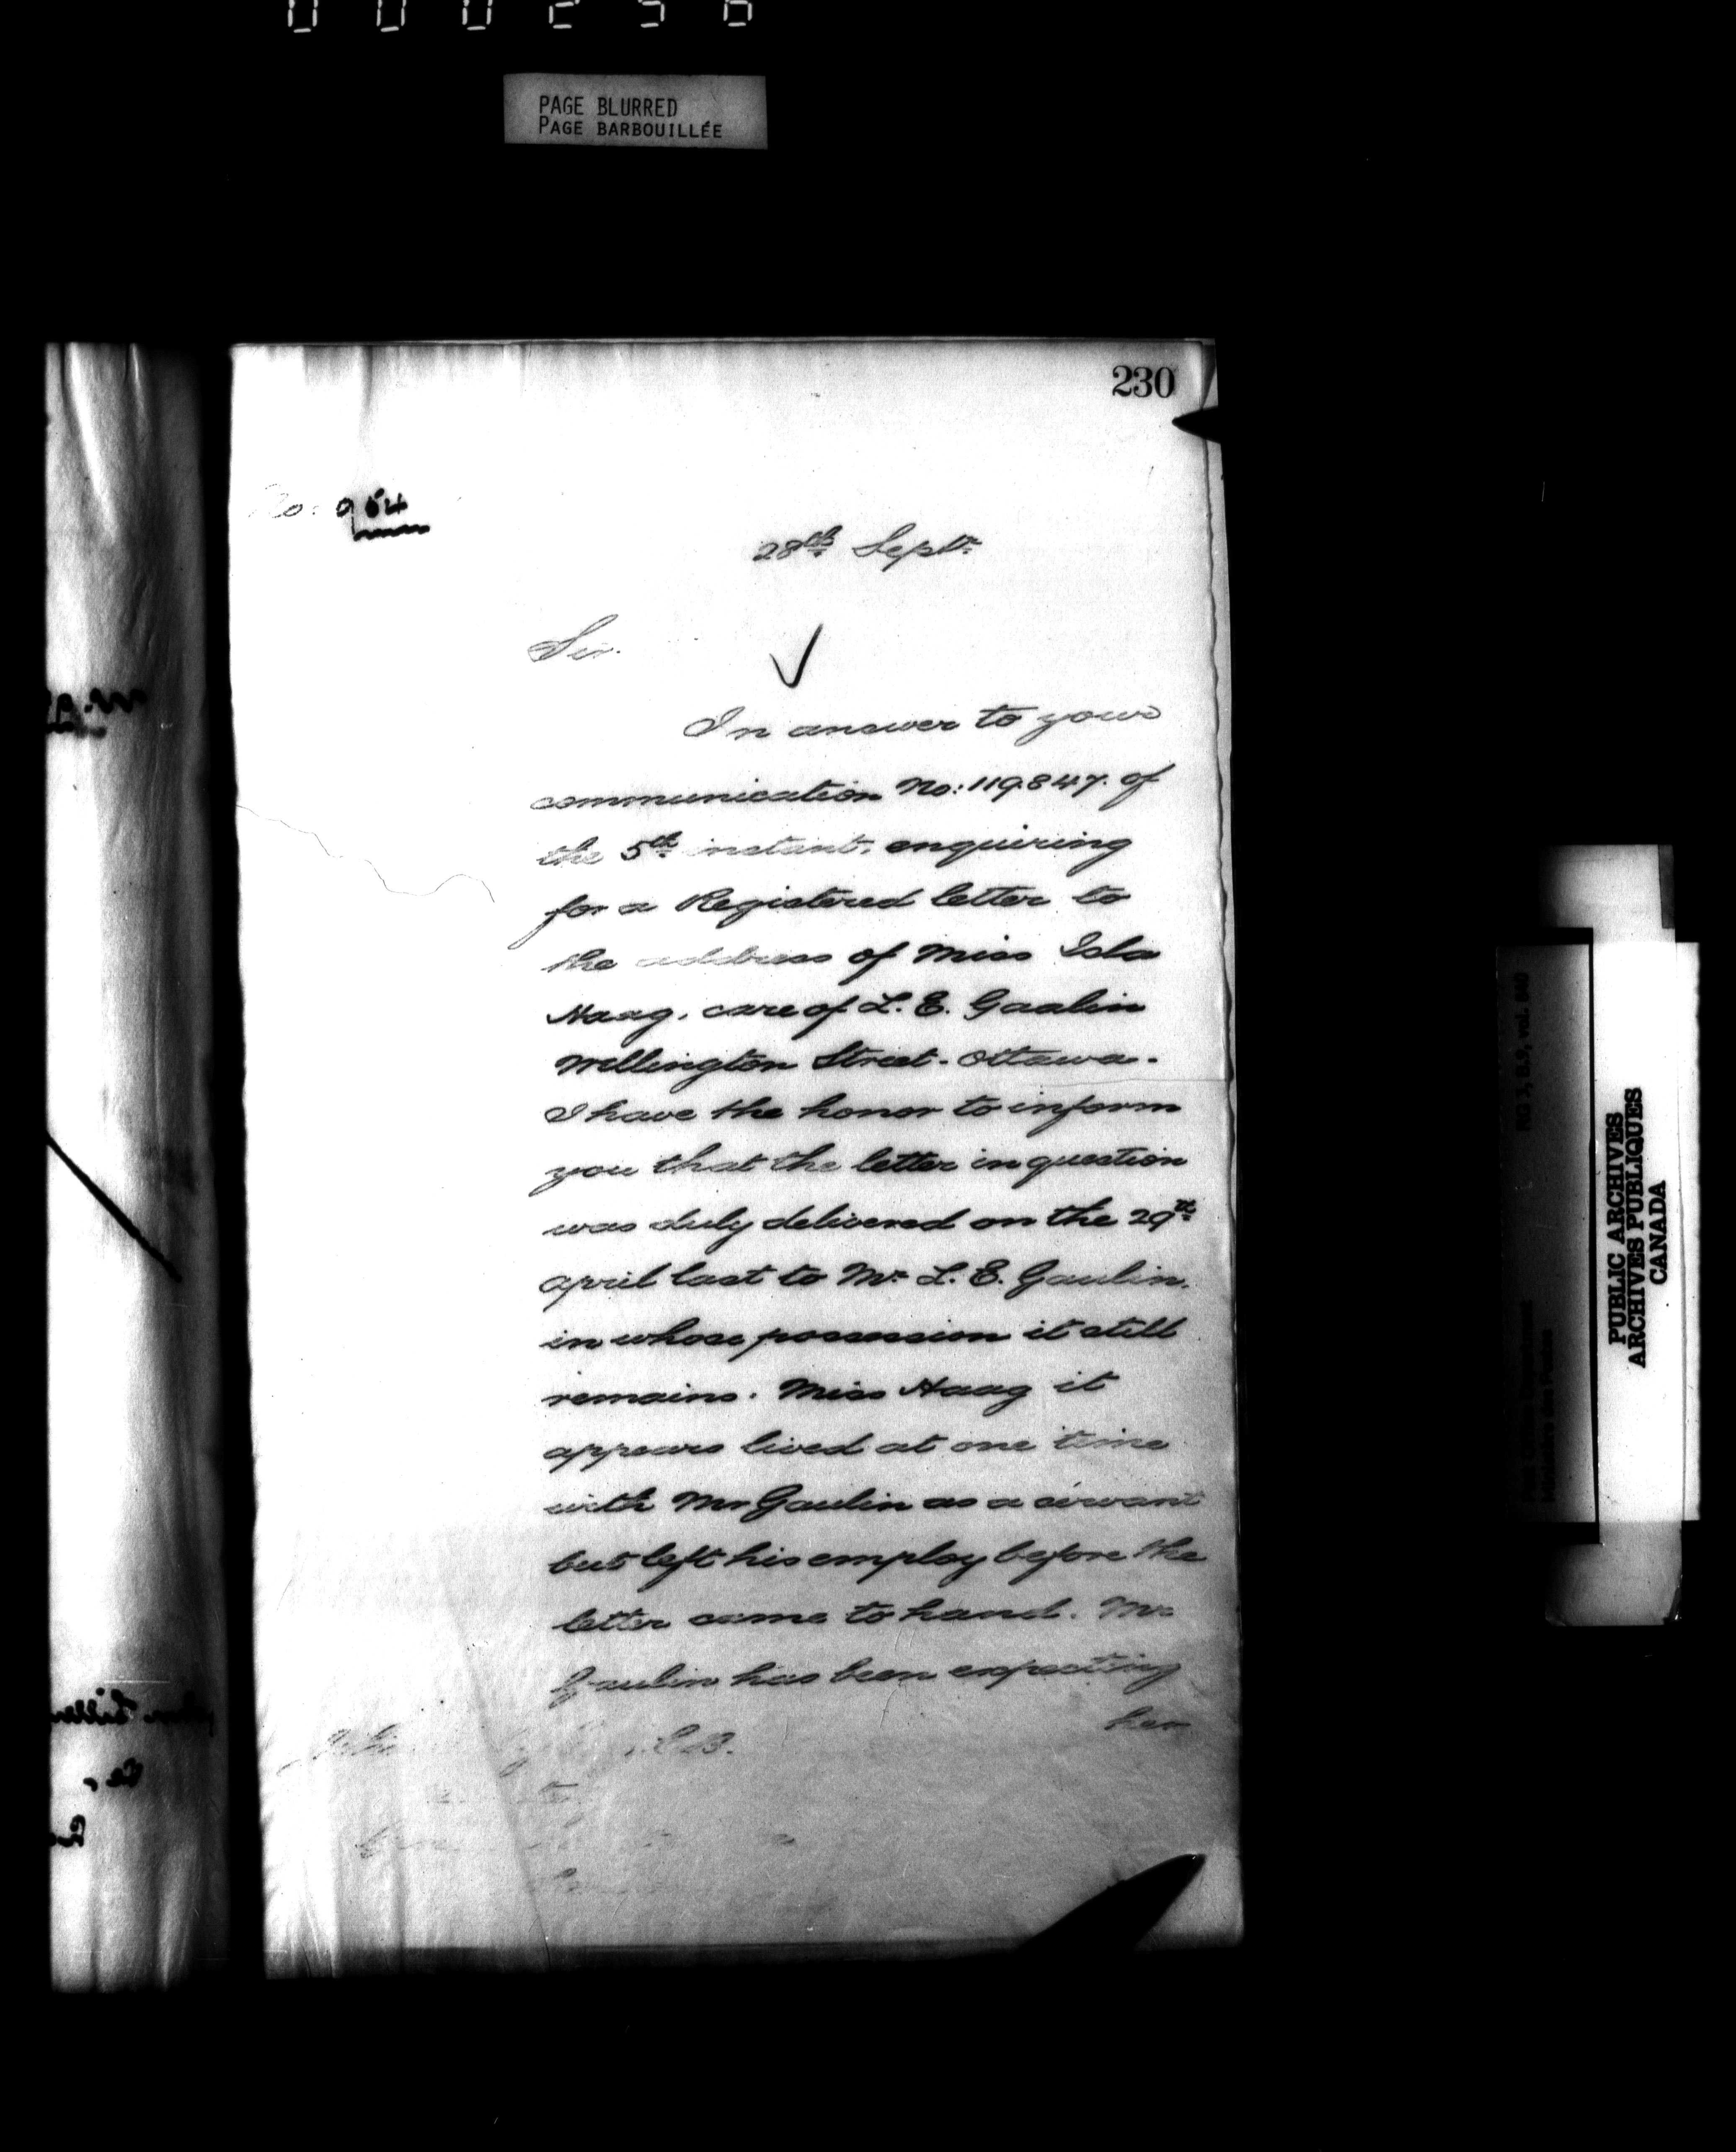 000256
PAGE BLURRED
PAGE BARBOUILLÉE
230
No: 954
28th Septr.
Sir.
In answer to your
communication No: 119847. of
the 5th instant, enquiring
for a Registered letter to
the address of Miss Isla
Haag, care of L. E. Gaulin
Wellington Street. Ottawa.
I have the honor to inform
you that the letter in question
was duly delivered on the 29th
april last to Mr. L. E. Gaulin.
in whose possession it still
remains. Miss Haag it
appears lived at one time
with Mr Gaulin as a servant
but left his employ before the
letter came to hand. Mr
Gaulin has been expecting
her
PUBLIC ARCHIVES
ARCHIVES PUBLIQUES
CANADA